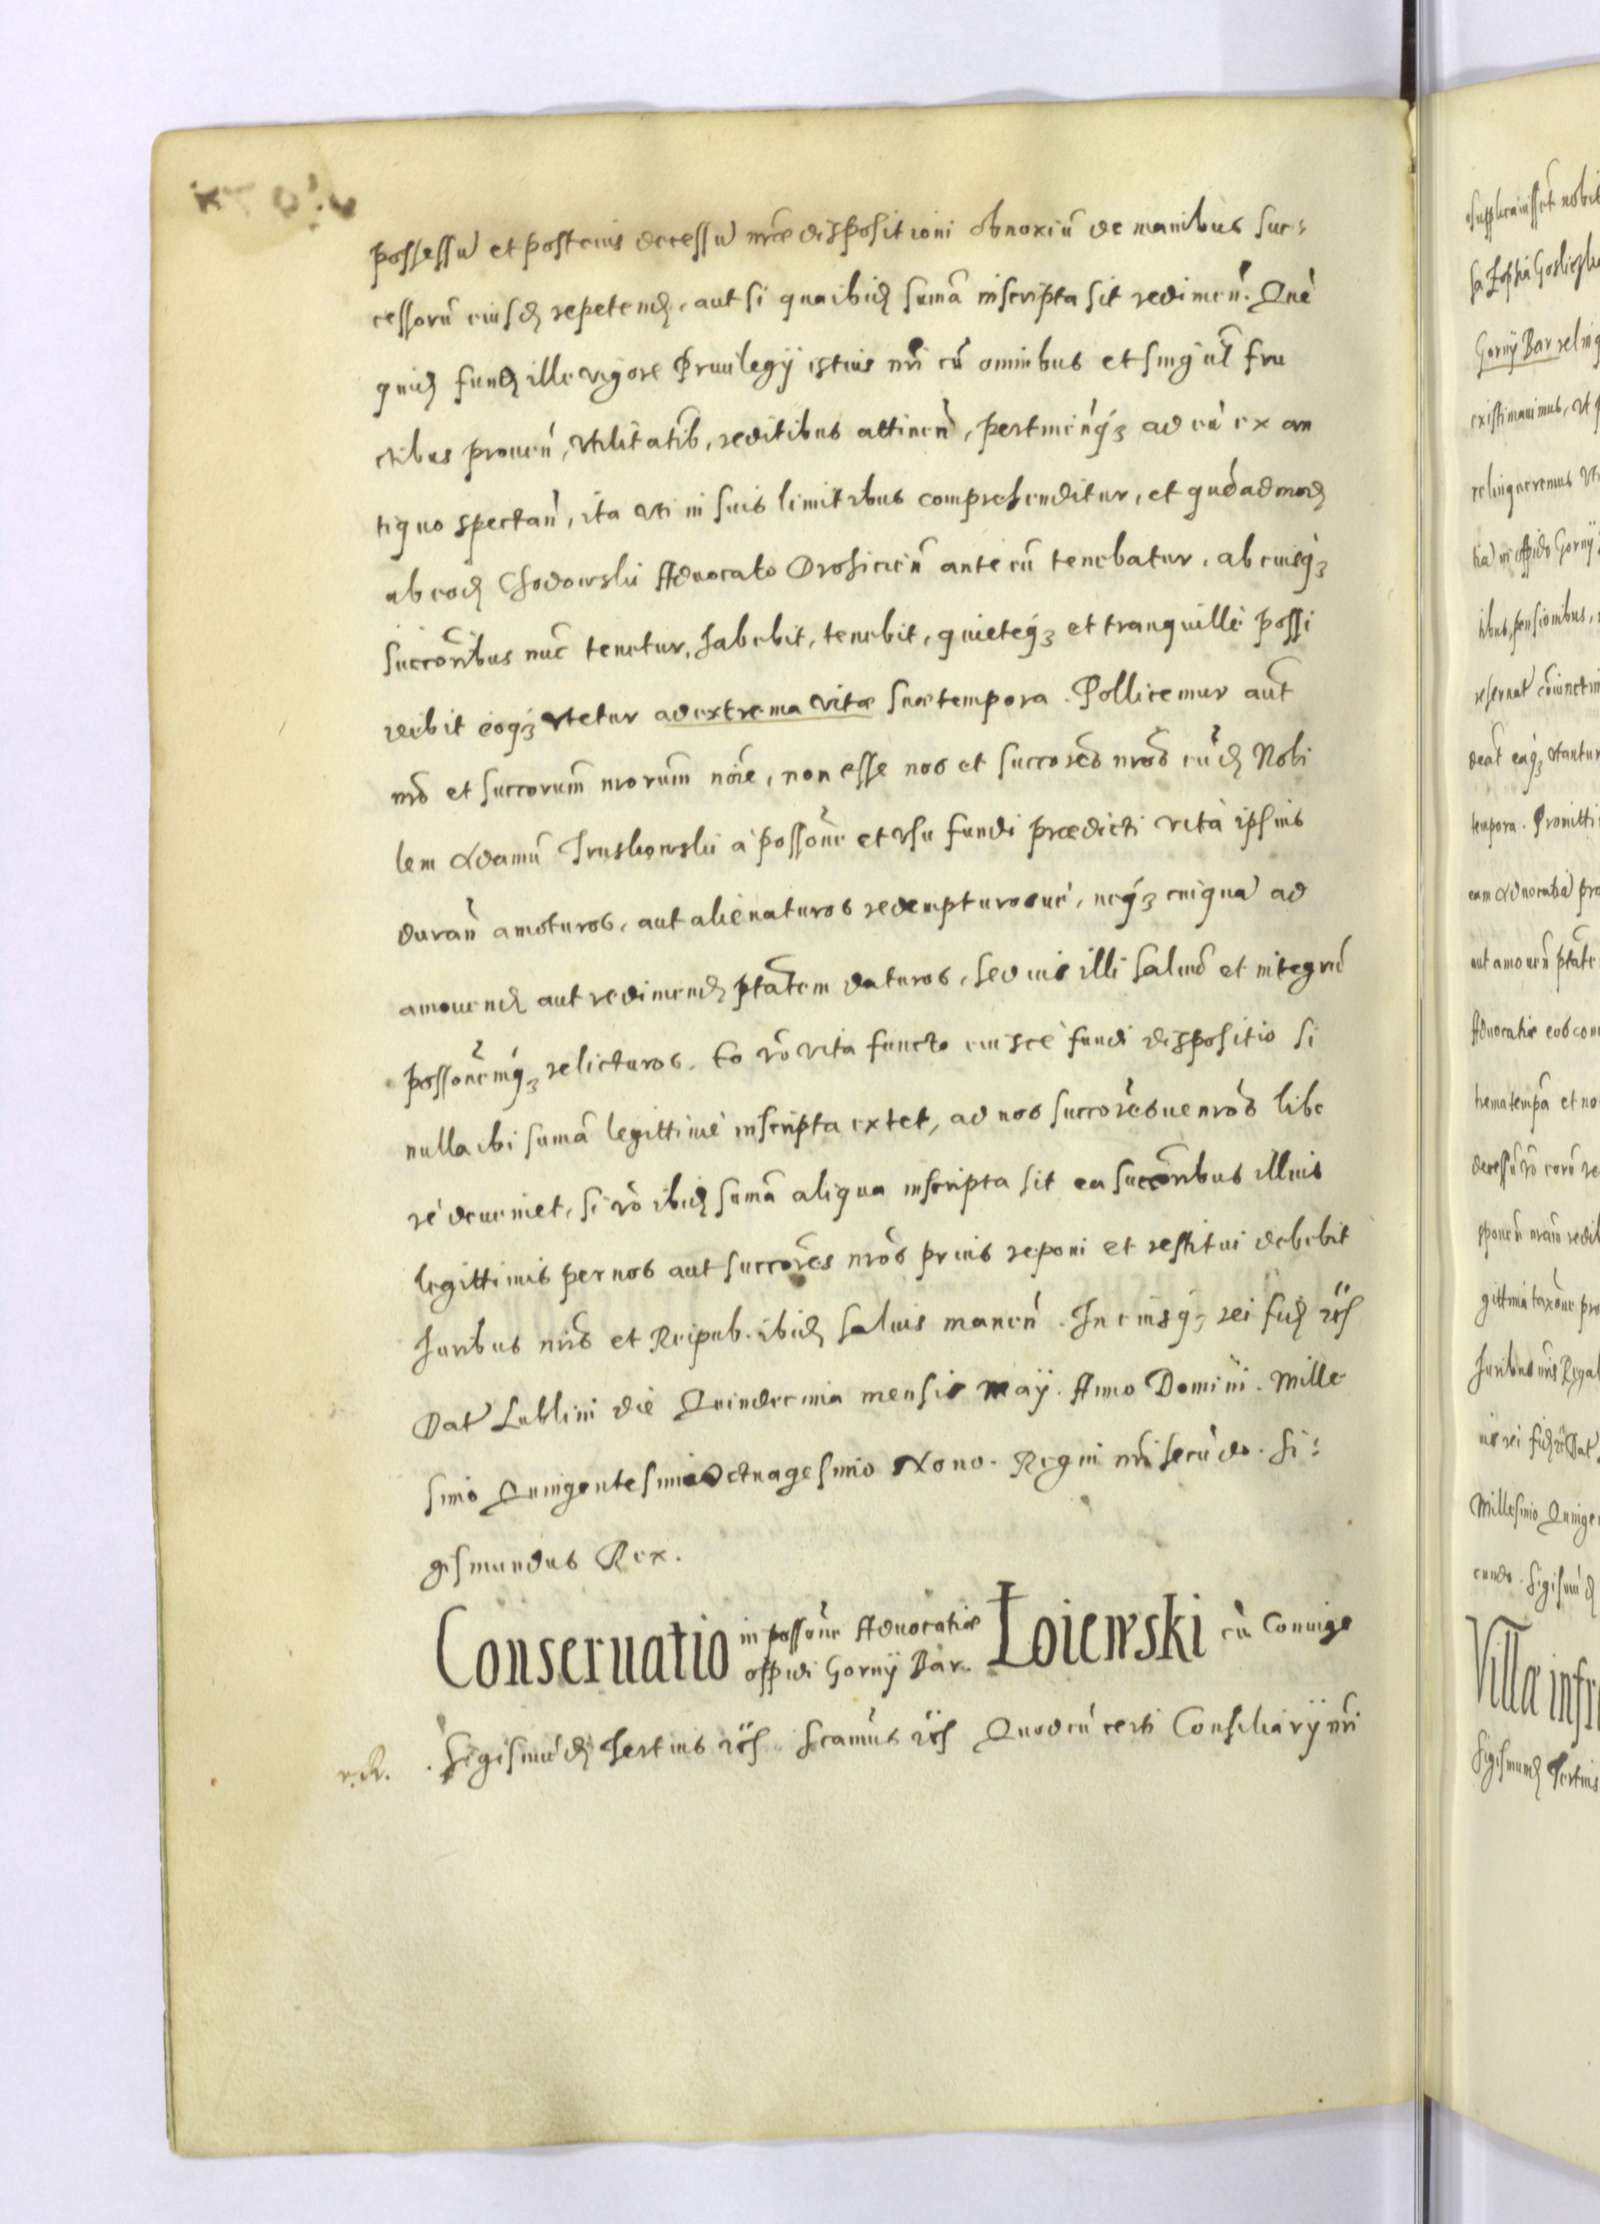 possessū et post eius decessū nrae dispositioni obnoxiū de manibus suc-
cessorū eiusd repetend, aut si qua ibid sumā inscripta sit redimeñ. Quē
quid fund ille vigore Priuilegÿ istius nri cū omnibus et singul fru
ctibus proueñ, vtilitatib, reditibus attineñ, pertineñq3 ad eū ex an
tiquo spectañ, ita vti in suis limitibus comprehenditur, et quēadmod
ab eod Chodowski Aduocato Drohicieñ anteēū tenebatur, ab eiusq3
succoribus nūc tenetur, habebit, tenebit, quieteq3 et tranquillè possi
debit eoq3 vtetur ad extrema vitæ suæ tempora. Pollicemur aūt
nrō et succorum nrorum nōīe, non esse nos et succores nros eūd Nobi
lem Adamū Truskowski à possone et vsu fundi prædicti vita ipsius
durañ amoturos, aut alienaturos redempturosue, neq3 cuiquā ad
amouend aut redimend ptātem daturos, sed ius illi saluū et integrū
possonemq3 relicturos. Eo vō vita functo eiusce fundi dispositio si
nulla ibi sumā legittimè inscripta extet, ad nos succoresue nros libe
rè deueniet, si vō ibid sumā aliqua inscripta sit ea succoribus illius
legittimis per nos aut succores nros prius reponi et restitui debebit
Juribus nris et Reipub. ibid saluis maneñ. In eiusq3 rei fid rc̃
Dat Lublini die Quindecima mensis Maÿ. Anno Domini. Mille
simo Quingentesimo Octuagesimo Nono. Regni nri secūdo. Si-
gismundus Rex.
Conseruatio in possone Aduocatiæ oppidi Gornÿ Bar. Łoiewski cū Coniuge
r. R. Sigismūd Tertius rc̃ Scamus rc̃ Quod cū certi Consiliarÿ nri
supplicauissēt nobis
sa Zophia
Gornÿ Bar reling
existimauimus, vt
relinqueremus vti
tiā in oppido Gornÿ
tibus, pensionibus,
deāt eaq3 vtantur
tempora. Promitti
eam Aduocatiā
aut amoueñ ptāte
Aduocatiæ eos
trema tempa et no
decessū vō eorū re
Juribus nris Regal
ius rei fid rc̃ Dat
Millesimo Quinge
cundo. Sigismūd
Villæ infr
Sigismund Tertius